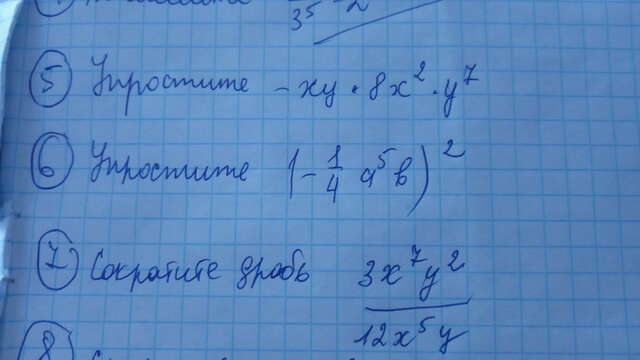 3⁵ - 2
5 Упростите - xy · 8x² · y⁷
6 Упростите (- 1/4 a⁵b)²
7 Сократите дробь 3x⁷y² / 12x⁵y
8